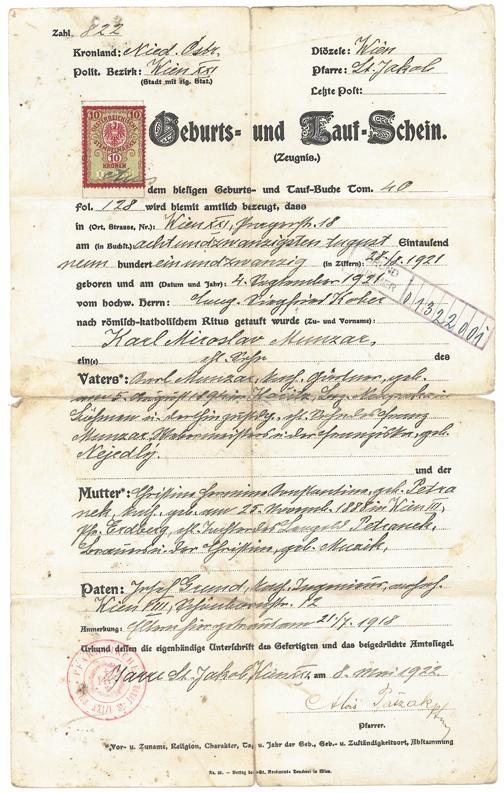 Zahl 822
Kronland: Nied. Östr.
Diözese: Wien
Polit. Bezirk: Wien XXI
(Stadt mit eig. Stat.)
Pfarre: St. Jakob
Letzte Post:
10 10
OESTERREICHISCHE
STEMPELMARKE
10
KRONEN
Geburts- und Tauf-Schein.
(Zeugnis.)
Aus dem hiesigen Geburts- und Tauf-Buche Tom. 40
fol. 128 wird hiemit amtlich bezeugt, dass
in (Ort, Strasse, Nr.): Wien XXI, Pragerstr. 18
am (in Buchst.) acht und zwanzigsten August Eintausend
neun hundert ein und zwanzig (in Ziffern): 28./8. 1921
geboren und am (Datum und Jahr): 4. September 1921
vom hochw. Herrn: Siegfried
01322001
nach römisch-katholischem Ritus getauft wurde (Zu- und Vorname):
Karl Miroslav Munzar,
ein(e) ehl. Sohn des
Vaters*: Karl Munzar, kath., Gärtner, geb.
am 5. August in
Böhmen ehl. Sohn des Franz
Munzar, u. der geb.
Nejedly.
und der
Mutter*: Christine Hermine Konstantine, geb. Petra
nek, kath., geb. am 25. in Wien III,
Pfr. Erdberg, ehl. Tochter des Leopold Petranek,
u. der Christine, geb.
Paten: Josef Grund, kath., Ingenieur, wohnh.
Wien VIII, 12
Anmerkung: Eltern hier getraut am 21/7. 1918
Urkund dessen die eigenhändige Unterschrift des Gefertigten und das beigedrückte Amtsiegel.
Pfarre St. Jakob, Wien XXI, am 8. Mai 1922
Alois
Pfarrer.
*Vor- u. Zuname, Religion, Charakter, Tag u. Jahr der Geb., Geb.- u. Zuständigkeitsort, Abstammung